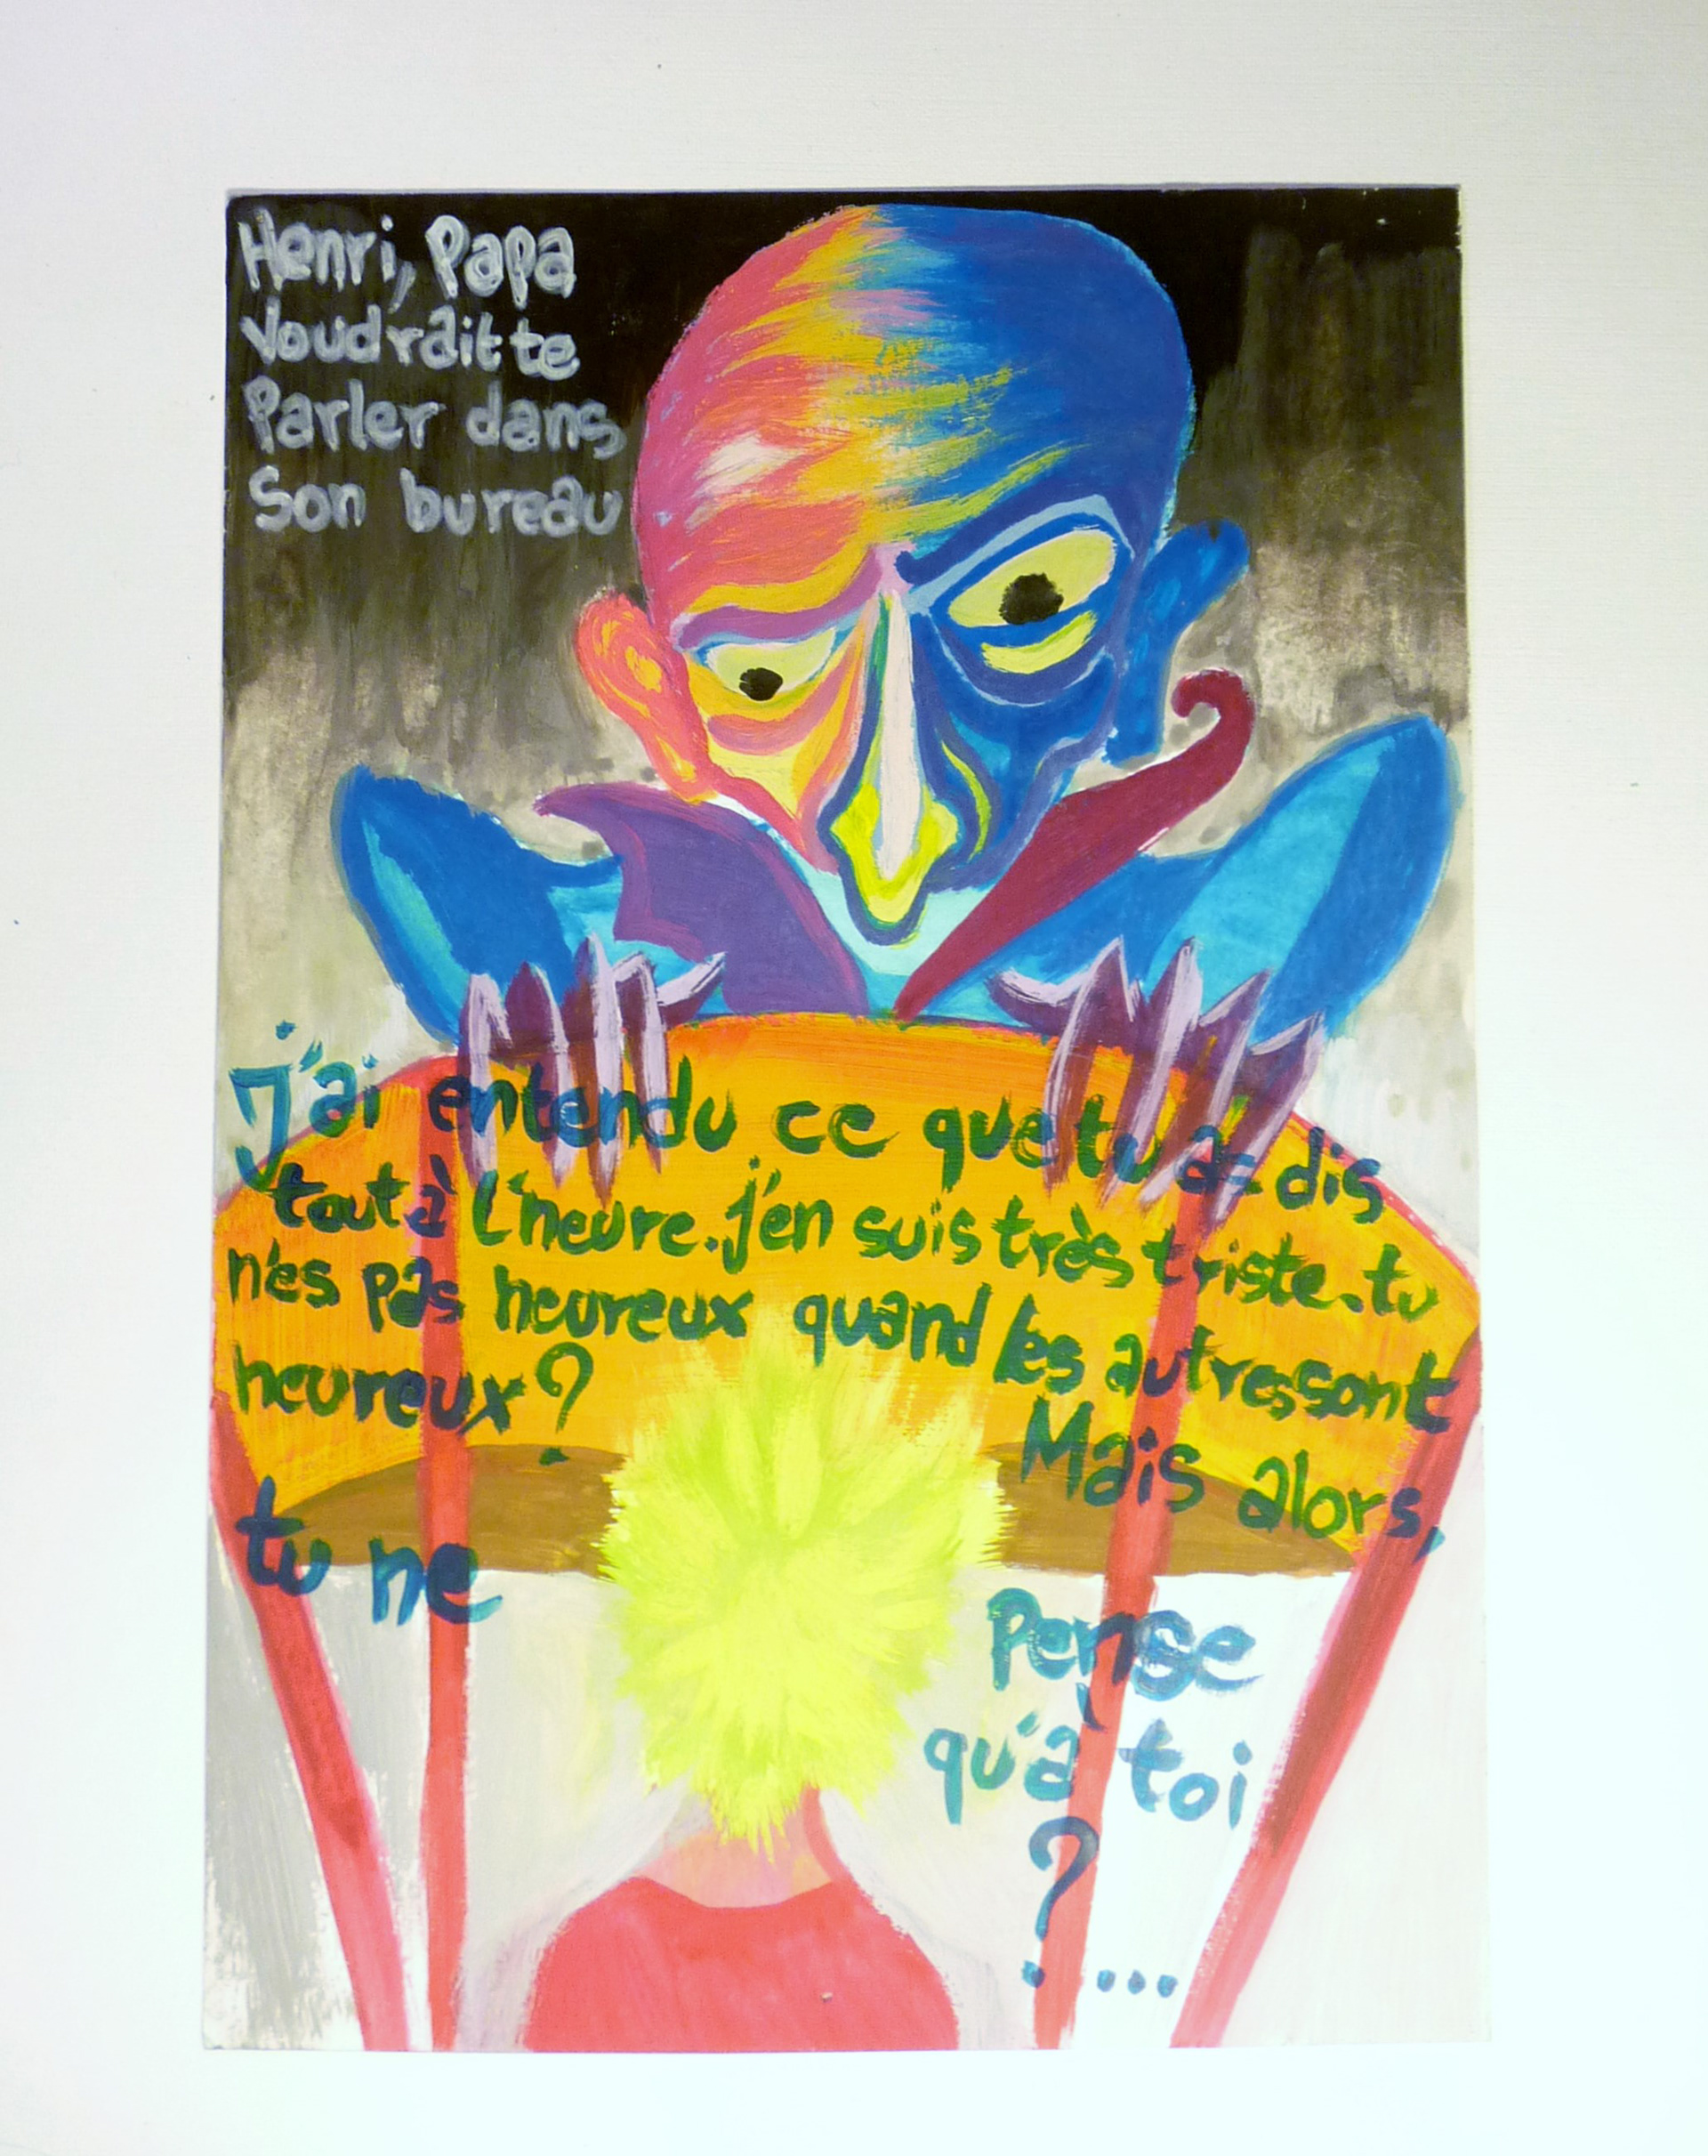 Henri, Papa
Voudrait te
Parler dans
Son bureau
J'ai entendu ce que tu as dis
tout à l'heure. j'en suis très triste. tu
n'es pas heureux quand les autres sont
heureux ?
Mais alors,
tu ne
Pense
qu'à toi
? ...